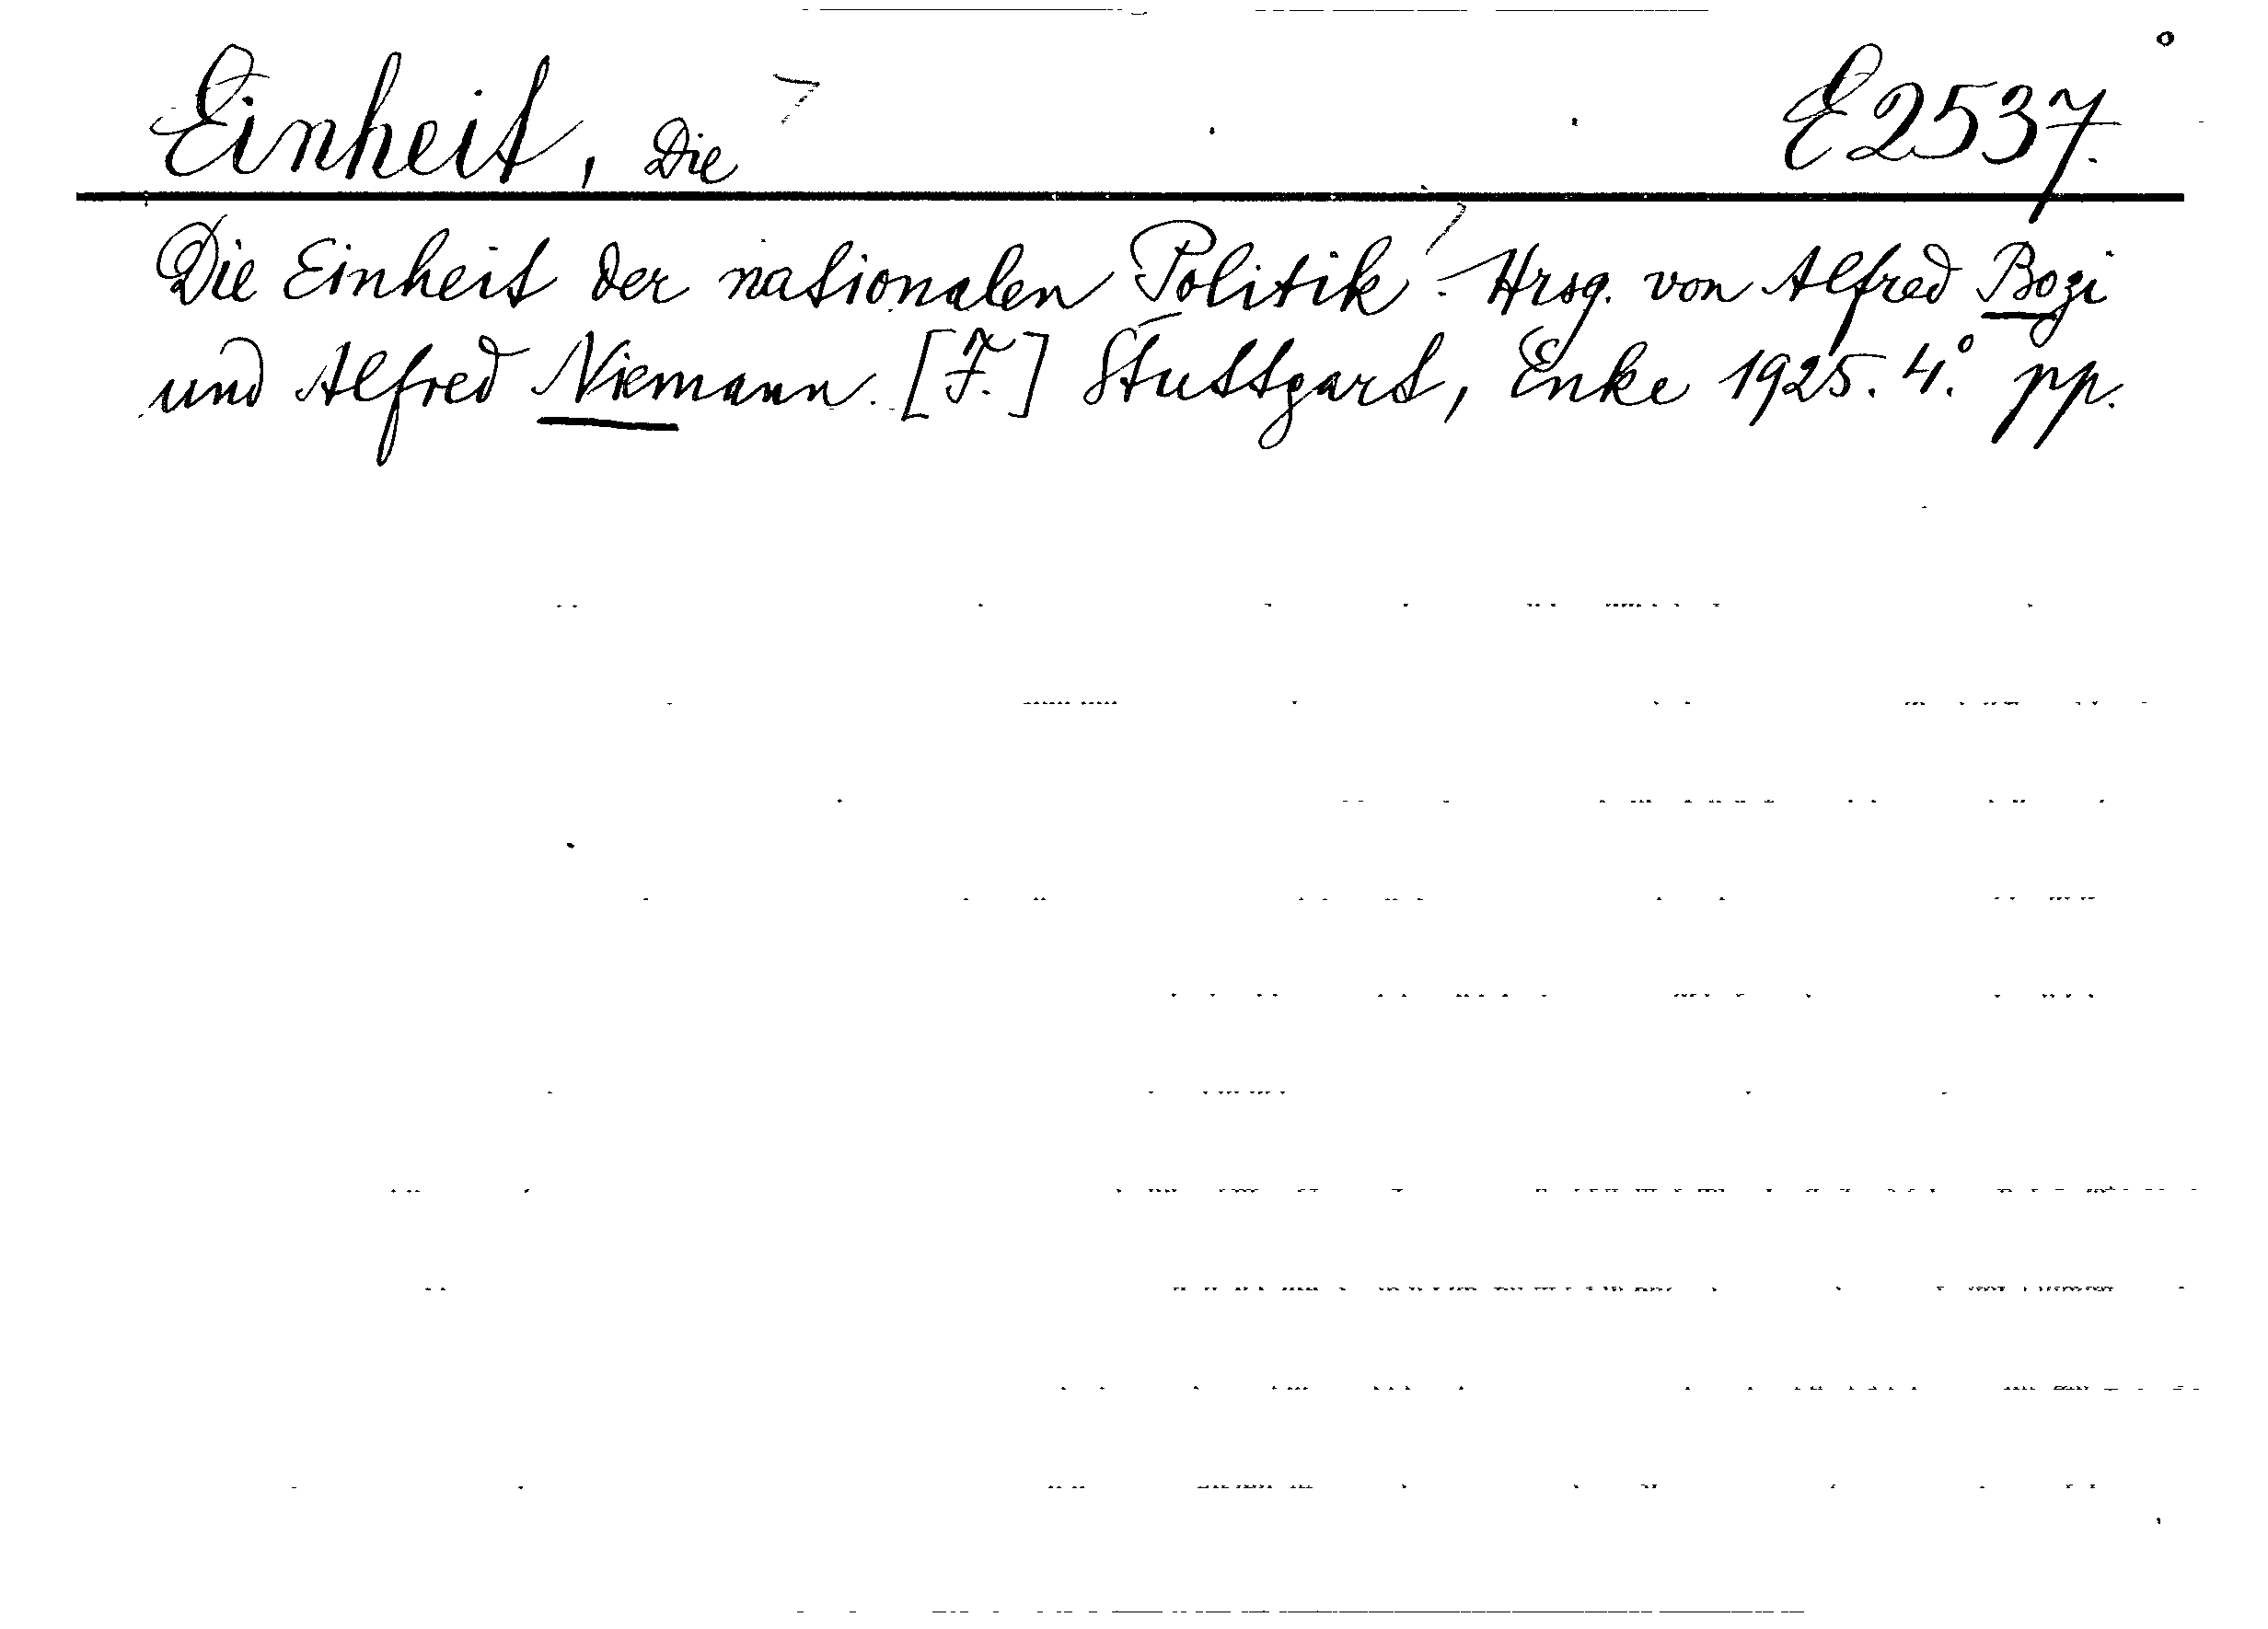 Einheit, Die E2537.
Die Einheit der nationalen Politik. Hrsg. von Alfred Bozi
und Alfred Niemann. [F.] Stuttgart, Enke 1925. 4.° pp.